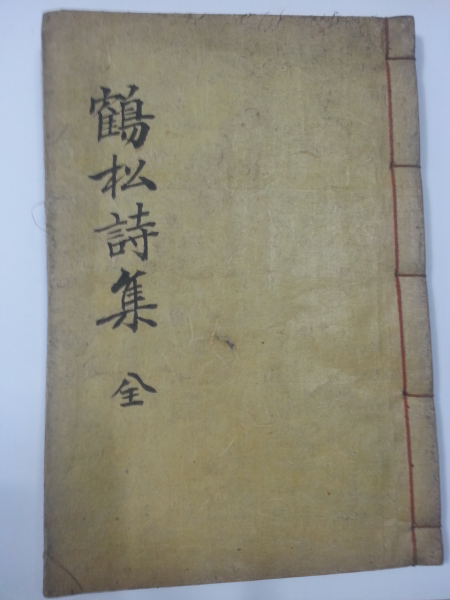 鶴松詩集 全